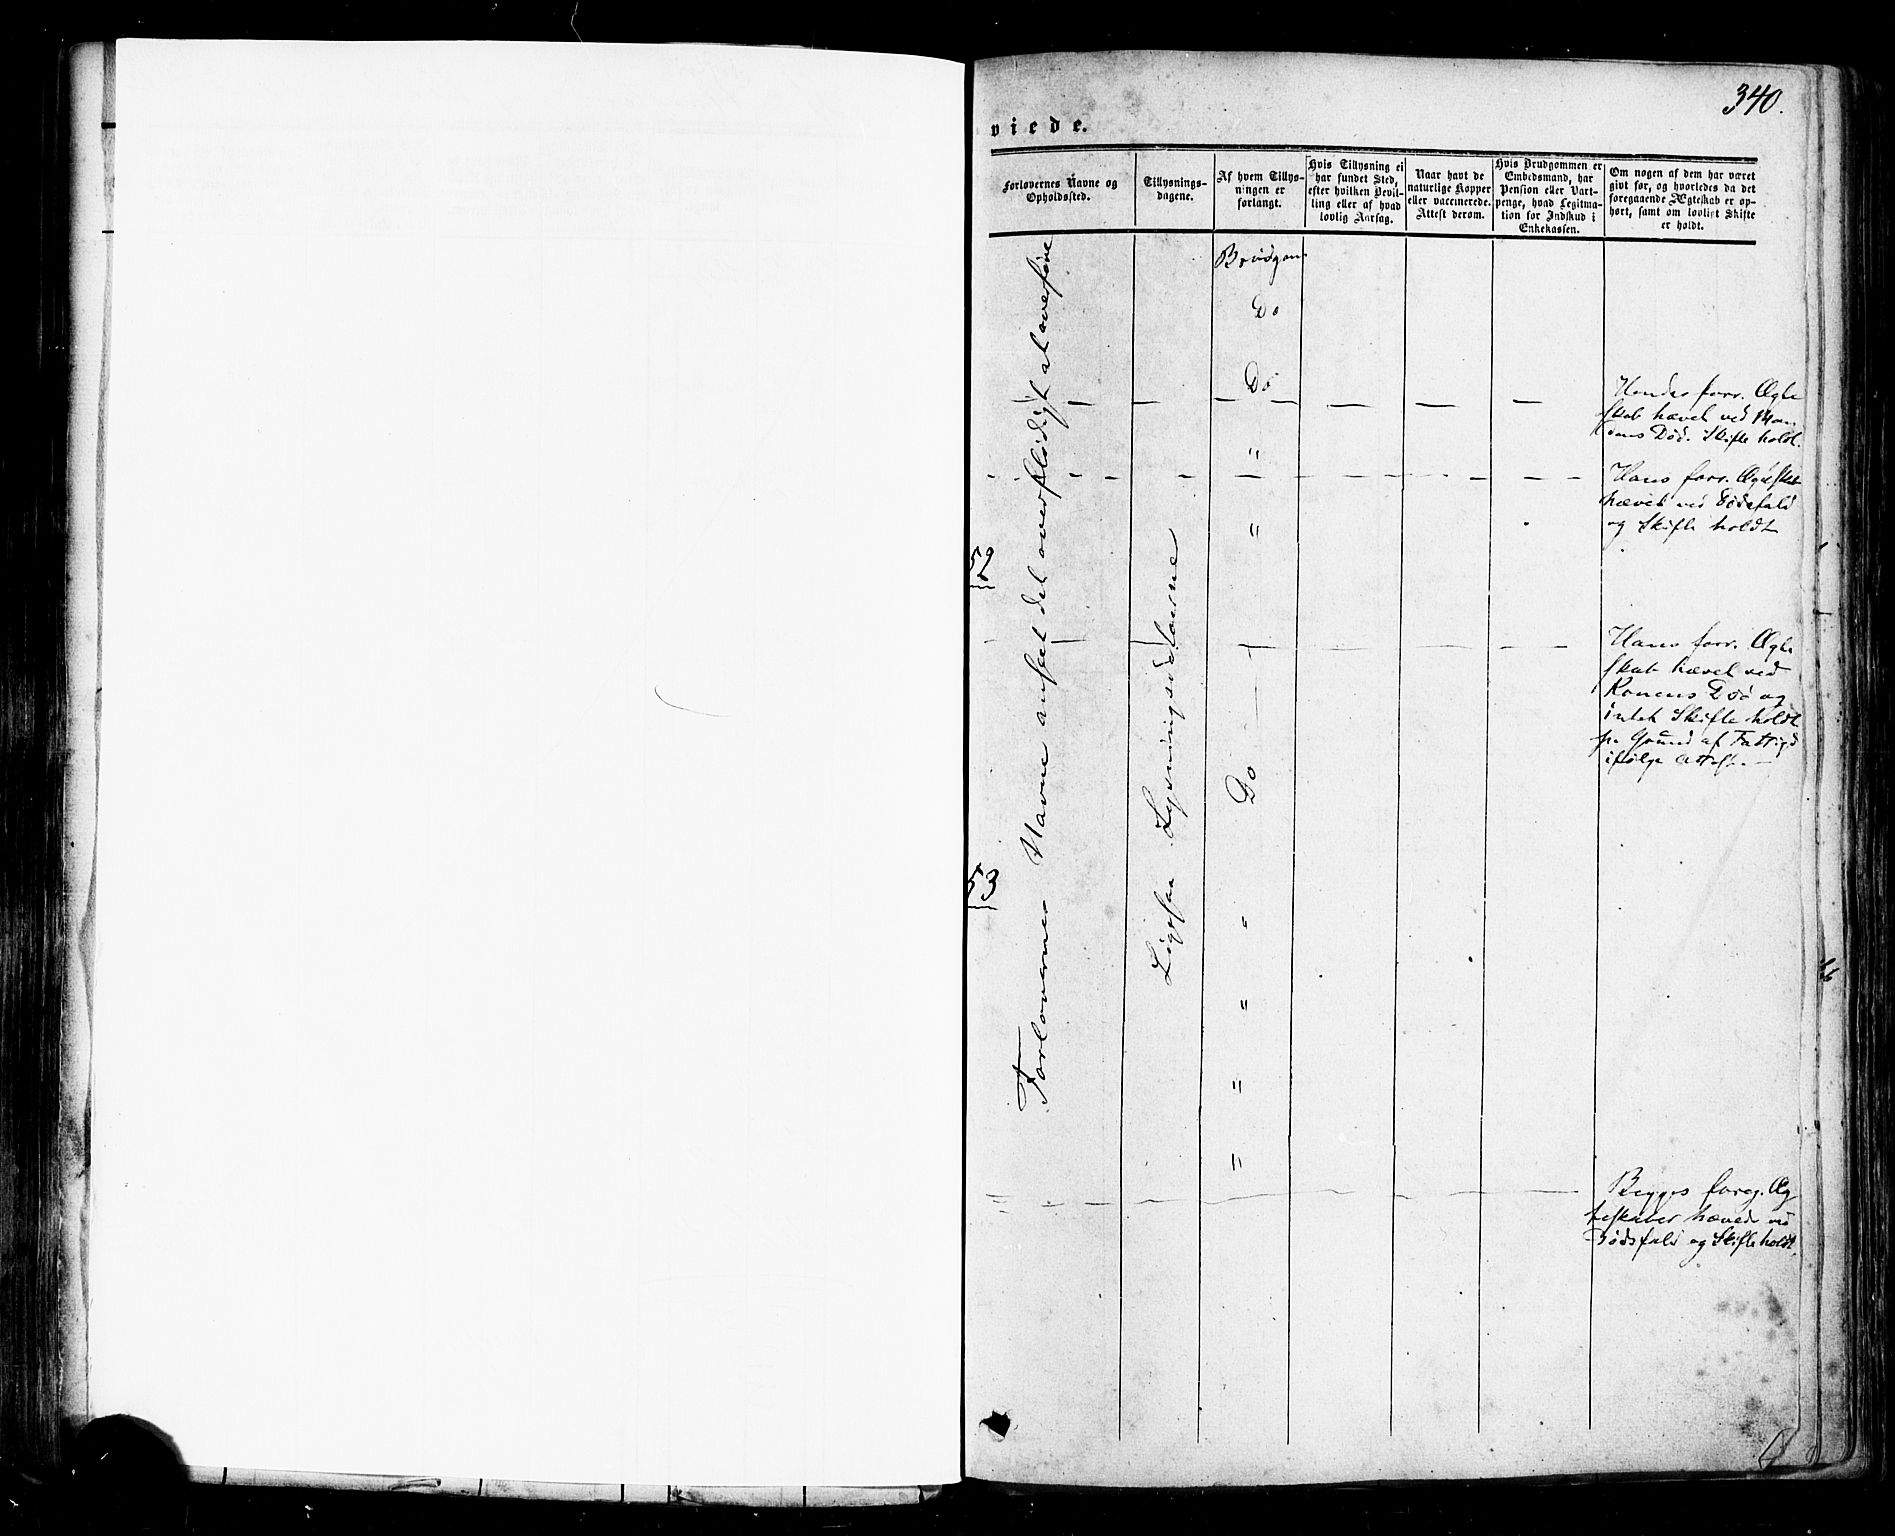 340.
viede.
Forlovernes Navne og
Opholdssted.
Tillysnings-
dagene.
Af hvem Tillys-
ningen er
forlangt.
Hvis Tillysning ei
har fundet Sted,
efter hvilken Bevil-
ling eller af hvad
lovlig Aarsag.
Naar havt de
naturlige Kopper
eller vaccinerede.
Attest derom.
Hvis Brudgommen er
Embedsmand, har
Pension eller Vart-
penge, hvad Legitima-
tion for Indskud i
Enkekassen.
Om nogen af dem har været
givt før, og hvorledes da det
foregaaende Ægteskab er op-
hørt, samt om lovligt Skifte
er holdt.
Forlovernes Navne anseet det overflödigt at overføre
Ligesaa Lysningsdatoerne
Brudgom
Do
Do
Hendes forr. Ægte
skab hævet ved Man
dens Död. Skifte holdt.
"
Hans forr. Ægteskab
hævet ved Dödsfald
og Skifte holdt
"
52
Hans forr. Ægte
skab hævet ved
Konens Död og
intet Skifte holdt
pa Grund af Fattigd
ifölge Attest. —
Do
53
"
"
"
"
Begges foreg. Æg
teskaber hævede ved
Dödsfald og Skifte holdt.